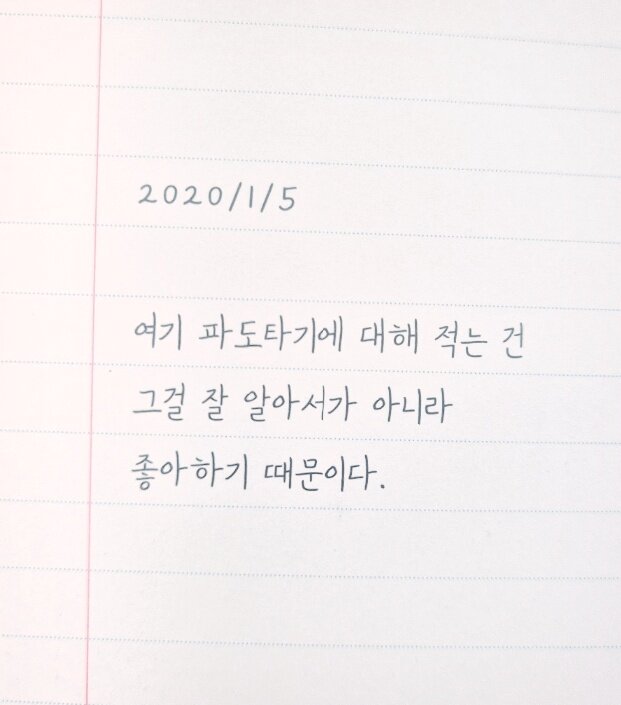 2020/1/5
여기 파도타기에 대해 적는 건
그걸 잘 알아서가 아니라
좋아하기 때문이다.